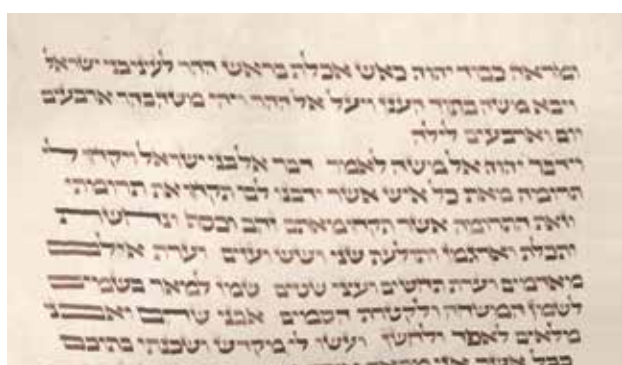 ומראה כבוד יהוה כאש אכלת בראש ההר לעיני בני ישראל
ויבא משה בתוך הענן ויעל אל ההר ויהי משה בהר ארבעים
יום וארבעים לילה
וידבר יהוה אל משה לאמר דבר אל בני ישראל ויקחו לי
תרומה מאת כל איש אשר ידבנו לבו תקחו את תרומתי
וזאת התרומה אשר תקחו מאתם זהב וכסף ונחשת
ותכלת וארגמן ותולעת שני ושש ועזים וערת אילם
מאדמים וערת תחשים ועצי שטים שמן למאר בשמים
לשמן המשחה ולקטרת הסמים אבני שהם ואבני
מלאים לאפד ולחשן ועשו לי מקדש ושכנתי בתוכם
ככל אשר אני מראה